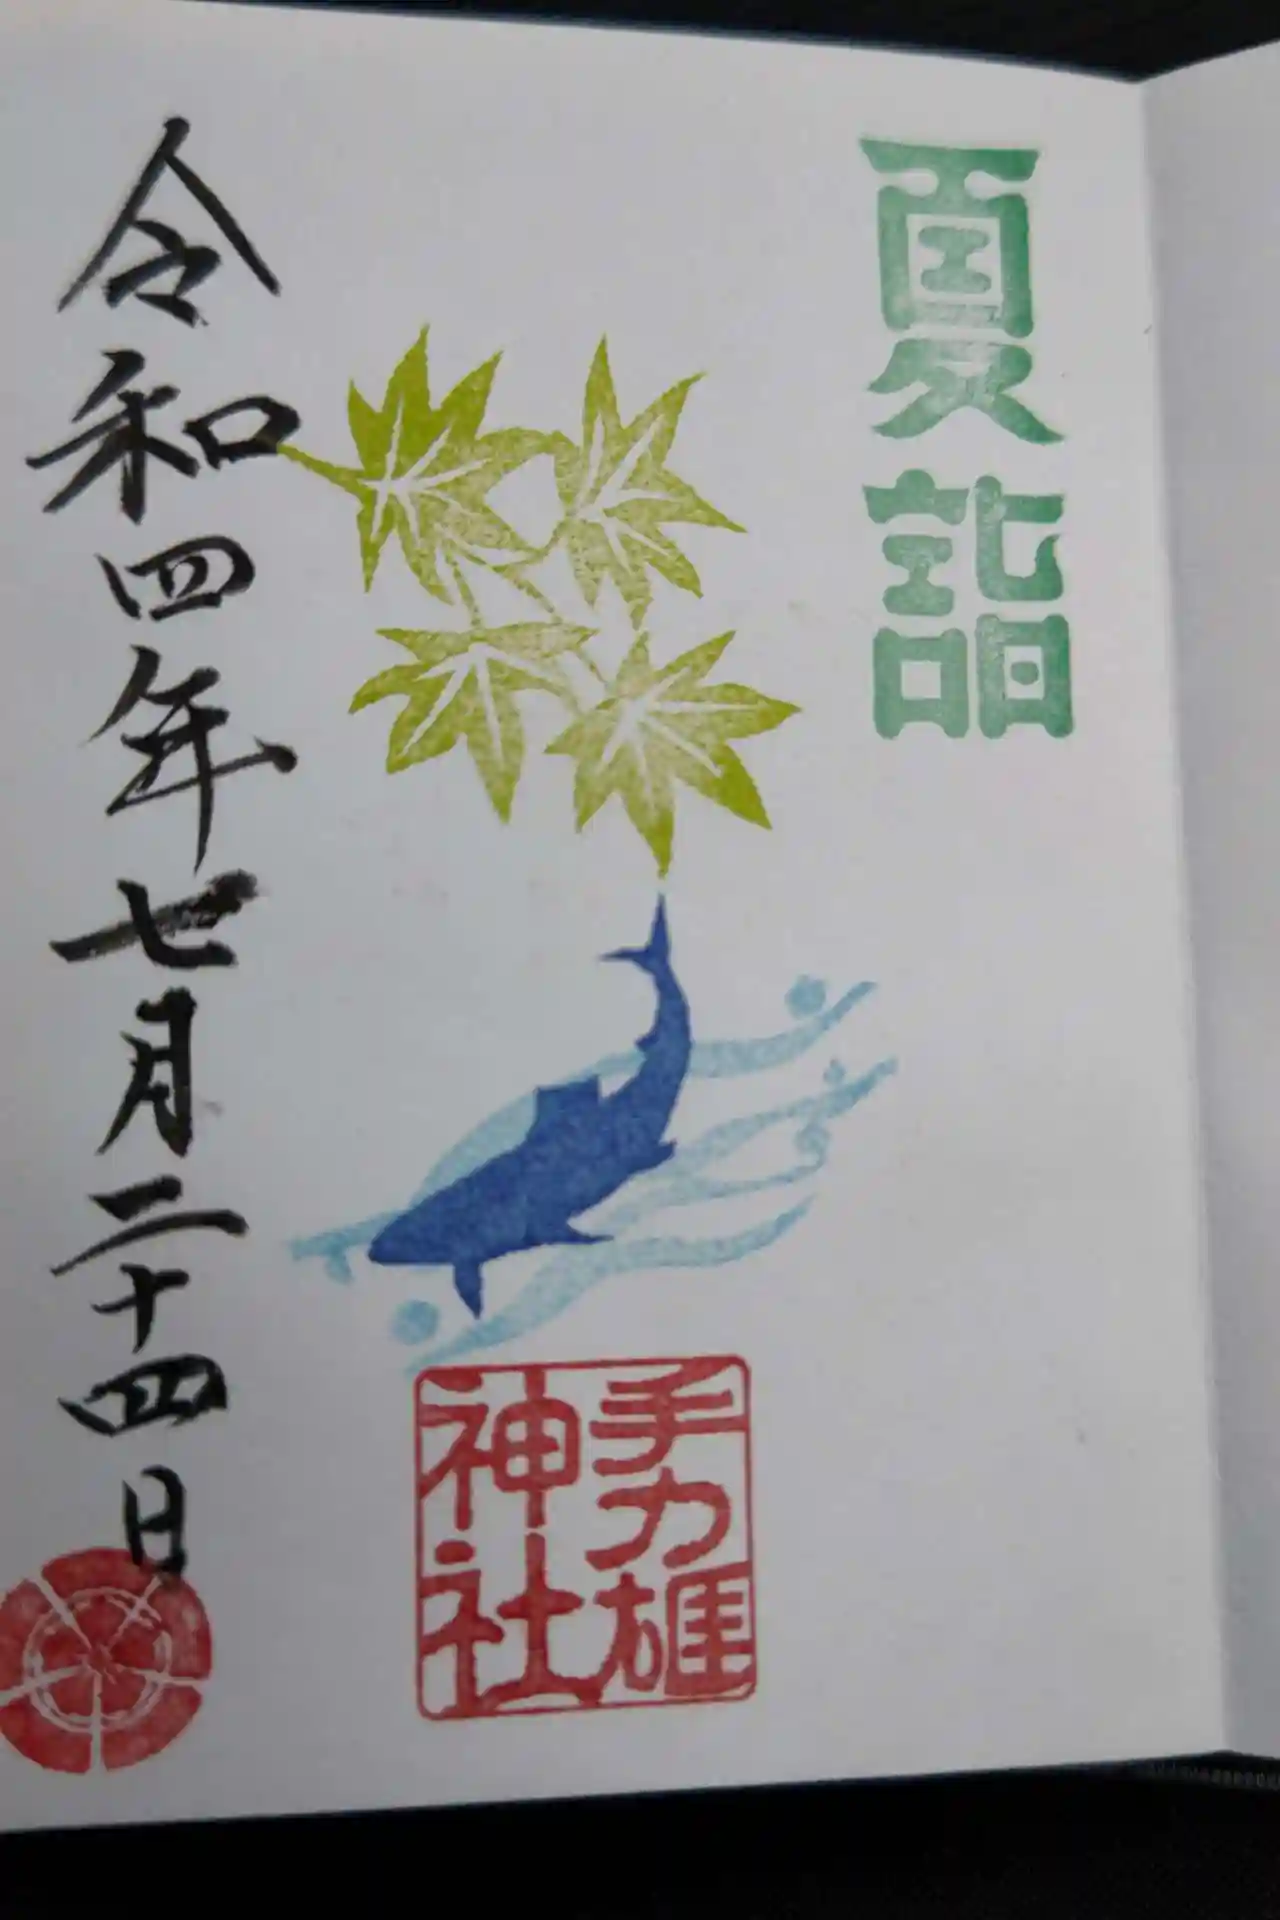 夏詣
手力雄
神社
令和四年七月二十四日